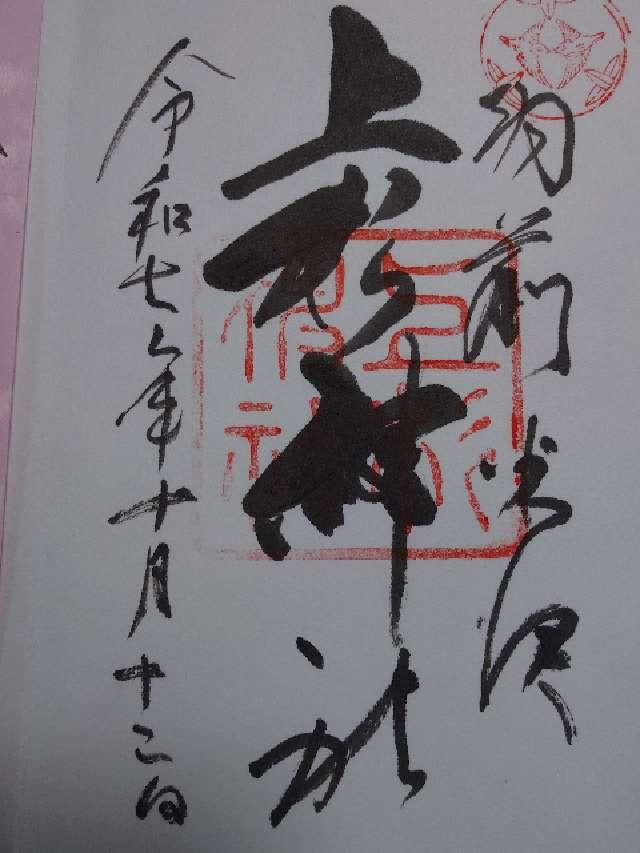 羽前米沢
上杉神社
令和七年十月十二日